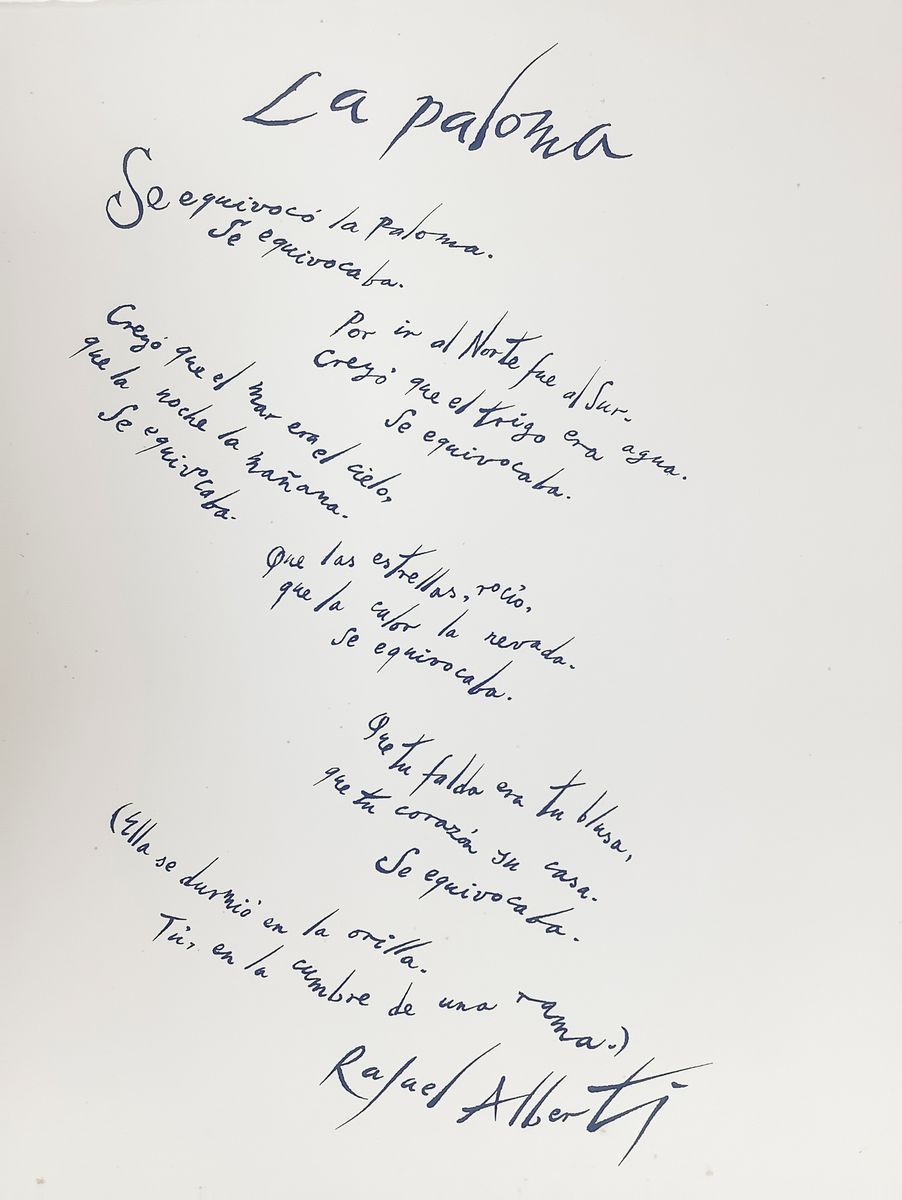 La paloma
Se equivocó la paloma.
Se equivocaba.
Por ir al Norte fue al Sur.
Creyó que el trigo era agua.
Se equivocaba.
Creyó que el mar era el cielo,
que la noche la mañana.
Se equivocaba.
Que las estrellas, rocío,
que la calor la nevada.
Se equivocaba.
Que tu falda era tu blusa,
que tu corazón su casa.
Se equivocaba.
(Ella se durmió en la orilla.
Tú, en la cumbre de una rama.)
Rafael Alberti